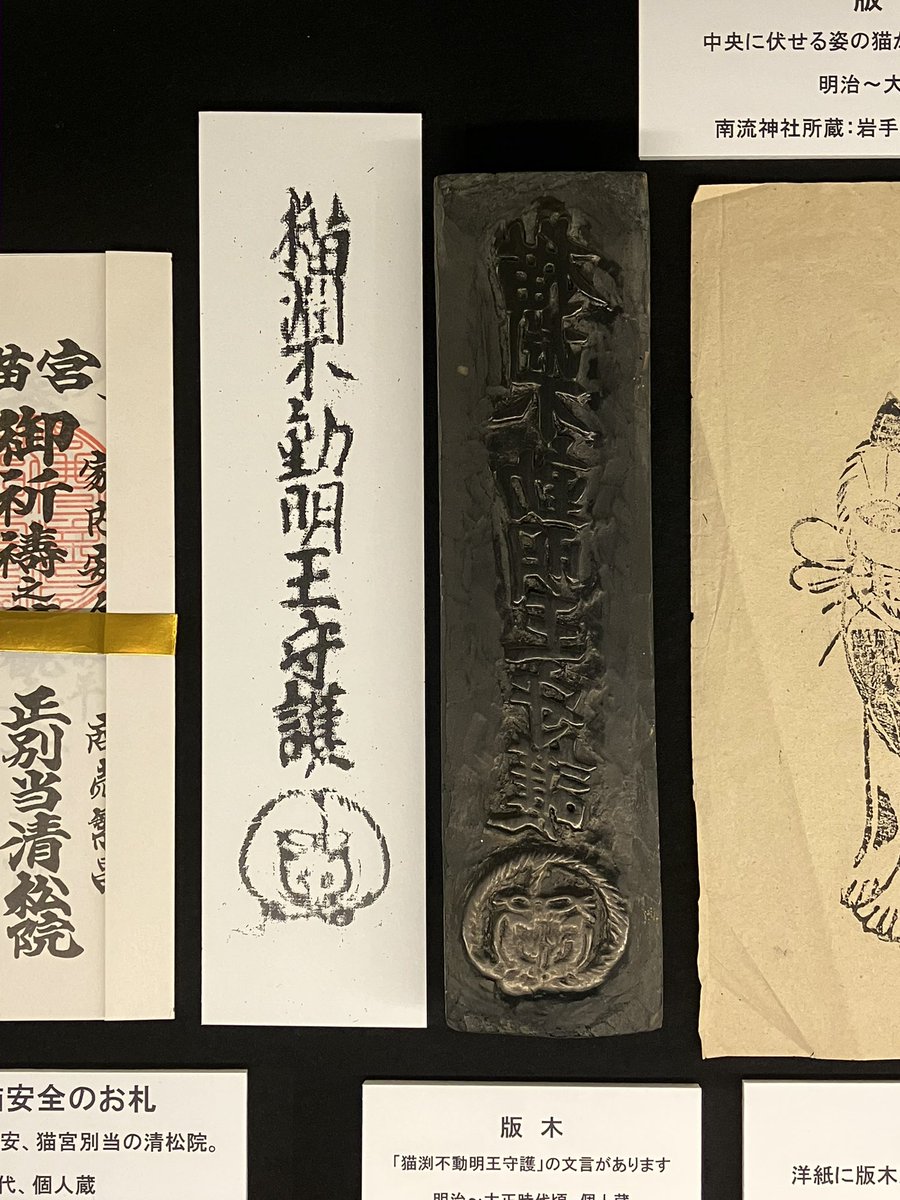 版
中央に伏せる姿の猫が
明治～大
南流神社所蔵：岩手
猫渕不動明王守護
苗宮
御祈祷之
家内安全
商売繁昌
正別当清松院
安全のお札
安、猫宮別当の清松院。
代、個人蔵
版 木
「猫渕不動明王守護」の文言があります
明治～大正時代頃、個人蔵
洋紙に版木